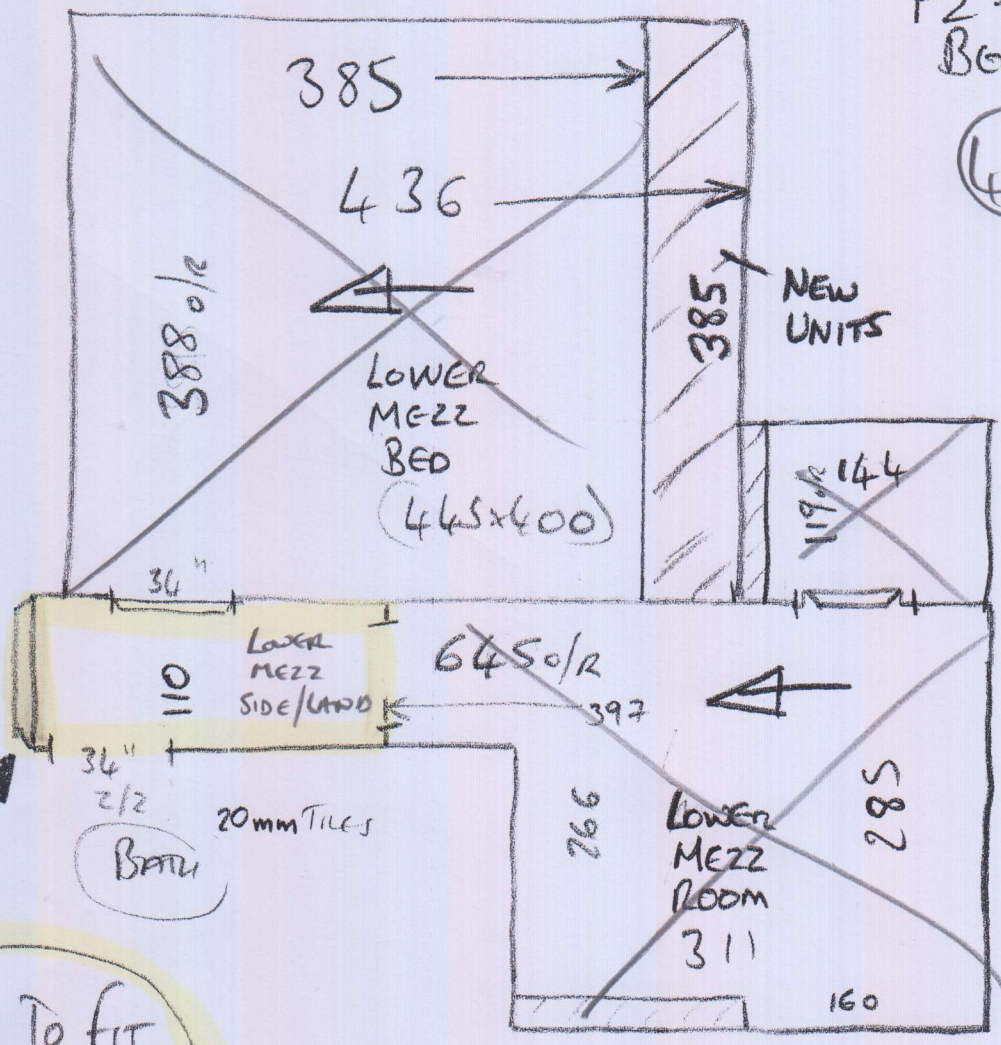 385
436
388 o/R
385
NEW
UNITS
LOWER
MEZZ
BED
(445x400)
144
119 o/R
34"
LOWER
MEZZ
SIDE/LAND
110
645 o/R
397
34"
2/2
BATH
20mm TILES
266
LOWER
MEZZ
ROOM
311
285
160
TO FIT